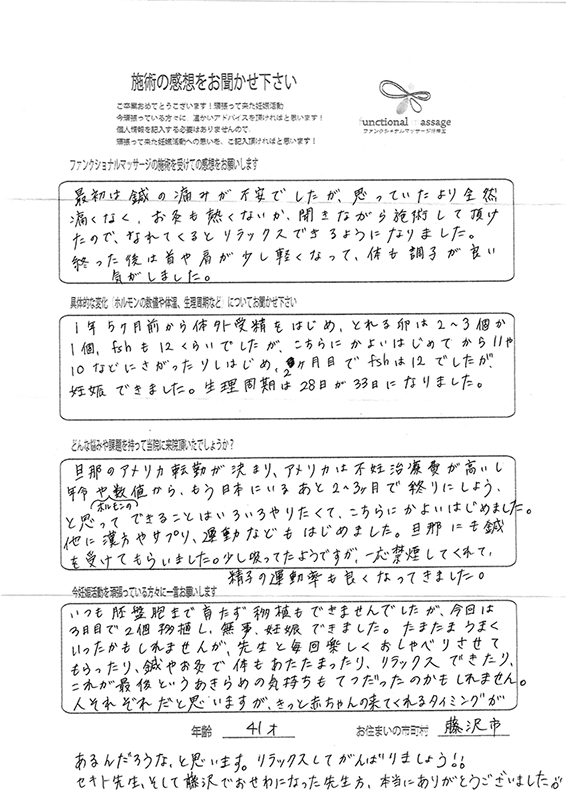 施術の感想をお聞かせ下さい
ご卒業おめでとうございます！頑張って来た妊娠活動
今頑張っている方々に、温かいアドバイスを頂ければと思います！
個人情報を記入する必要はありませんので、
頑張って来た妊娠活動への思いを、ご記入頂ければと思います！
functional massage
ファンクショナルマッサージ治療室
ファンクショナルマッサージの施術を受けての感想をお願いします
最初は鍼の痛みが不安でしたが、思っていたより全然
痛くなく、お灸も熱くないか、聞きながら施術して頂け
たので、なれてくるとリラックスできるようになりました。
終った後は首や肩が少し軽くなって、体も調子が良い
気がしました。
具体的な変化（ホルモンの数値や体温、生理周期など）についてお聞かせ下さい
1年5ヶ月前から体外受精をはじめ、とれる卵は2～3個か
1個、fshも12くらいでしたが、こちらにかよいはじめてから11や
10などにさがったりしはじめ、2ヶ月目でfshは12でしたが、
妊娠できました。生理周期は28日が33日になりました。
どんな悩みや課題を持って当院に来院頂いたでしょうか？
旦那のアメリカ転勤が決まり、アメリカは不妊治療費が高いし
年齢や数値から、もう日本にいるあと2～3ヶ月で終りにしよう、
ホルモンの
と思って できることはいろいろやりたくて、こちらにかよいはじめました。
他に漢方やサプリ、運動などもはじめました。旦那にも鍼
を受けてもらいました。少し吸ってたようですが、一応禁煙してくれて、
精子の運動率も良くなってきました。
今妊娠活動を頑張っている方々に一言お願いします
いつも胚盤胞まで育たず移植もできませんでしたが、今回は
3日目で2個移植し、無事、妊娠できました。たまたまうまく
いったかもしれませんが、先生と毎回楽しくおしゃべりさせて
もらったり、鍼やお灸で体もあたたまったり、リラックスできたり、
これが最後というあきらめの気持ちもてつだったのかもしれません。
人それぞれだと思いますが、きっと赤ちゃんの来てくれるタイミングが
年齢 41才 お住まいの市町村 藤沢市
あるんだろうな、と思います。リラックスしてがんばりましょう！！
セキト先生、そして藤沢でおせわになった先生方、本当にありがとうございました